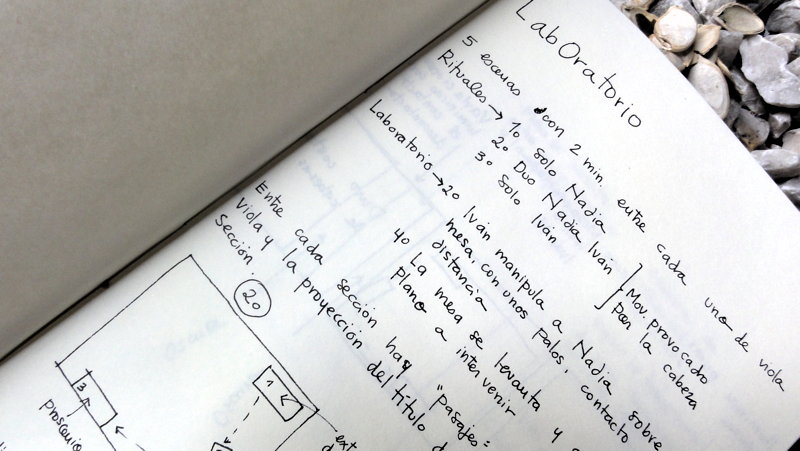 LabOratorio
5 escenas con 2 min. entre cada uno de viola
Rituales → 1º solo Nadia
2º Duo Nadia Iván
3º Solo Iván
Mov. provocado
por la cabeza
Laboratorio → 2º Iván manipula a Nadia sobre
mesa, con unos palos, contacto
distancia
4º La mesa se levanta y
plano a intervenir
Entre cada sección hay "Pasajes:
viola y la proyección del título d
sección.
20
3
1
proscenio
ext